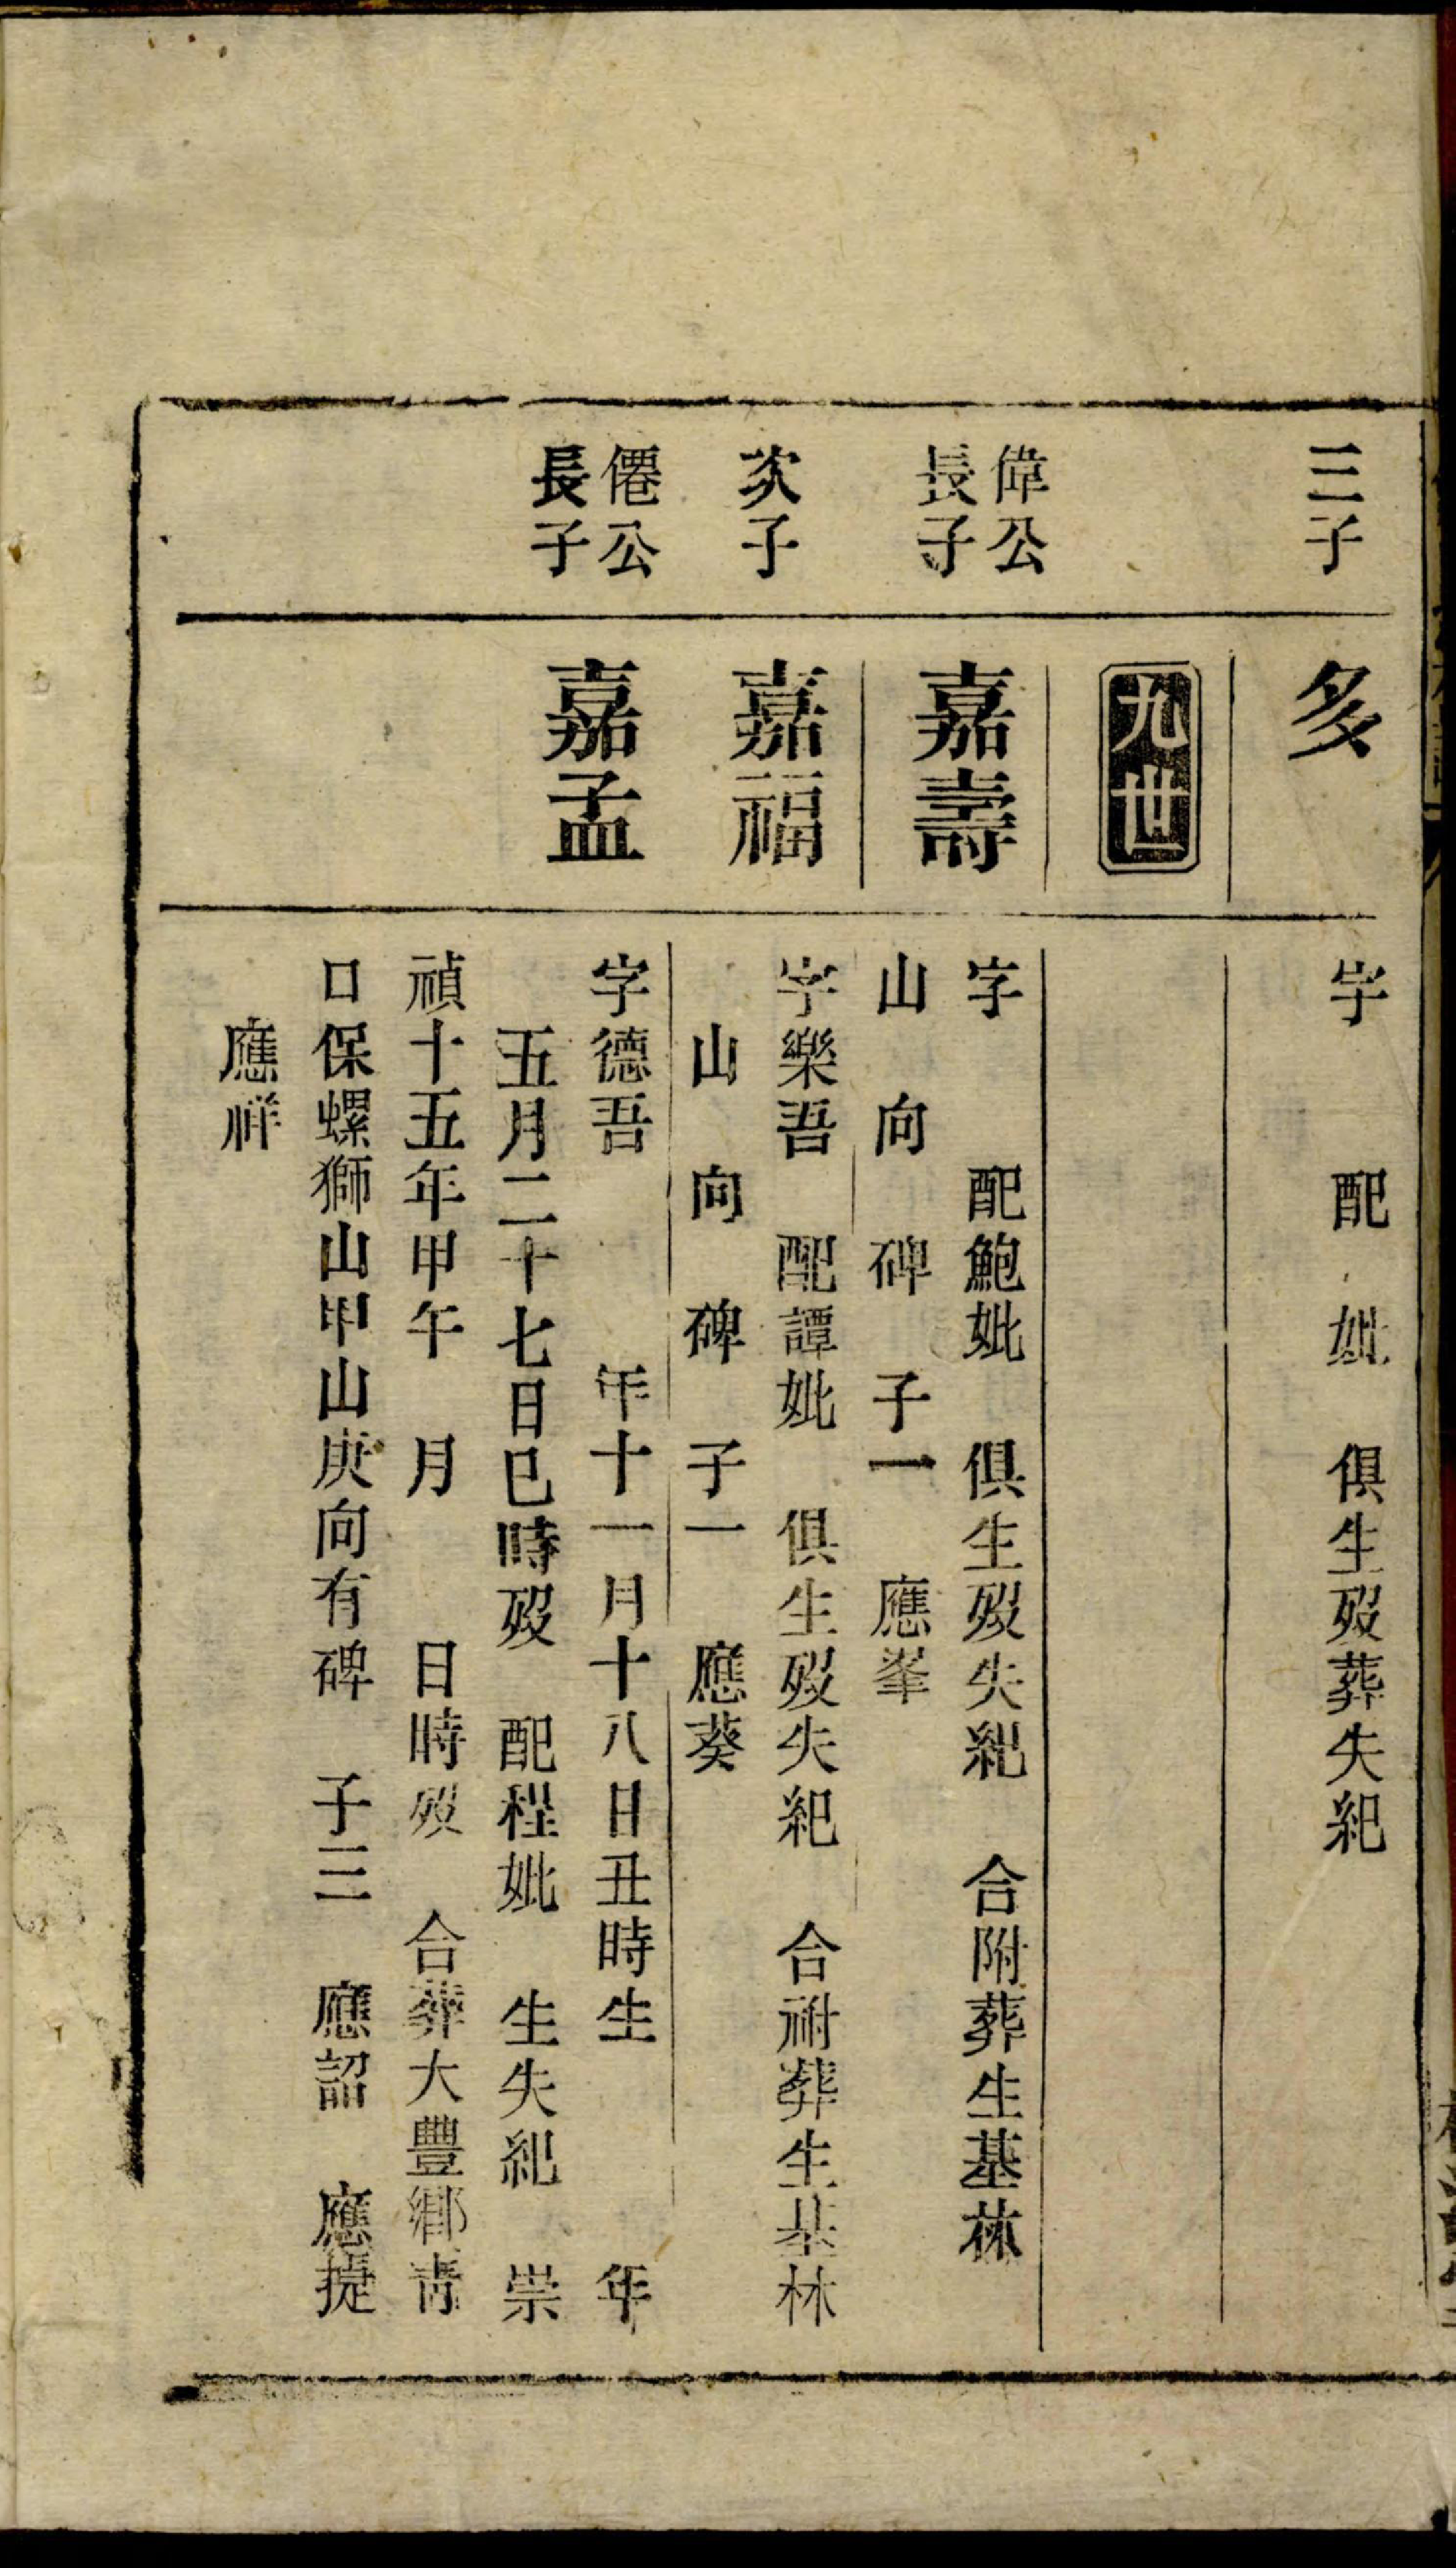 三子
多
字 配 妣 俱生歿葬失紀
九世
偉公
長子
嘉壽
字 配鮑妣 俱生歿失紀 合附葬生基林
山 向 碑 子一 應峯
次子
嘉福
字樂吾 配譚妣 俱生歿失紀 合祔葬生基林
山 向 碑 子一 應葵
僊公
長子
嘉孟
字德吾 年十一月十八日丑時生 年
五月二十七日巳時歿 配程妣 生失紀 崇
禎十五年甲午 月 日時歿 合葬大豐鄉靑
口保螺獅山甲山庚向有碑 子三 應詔 應提
應祥